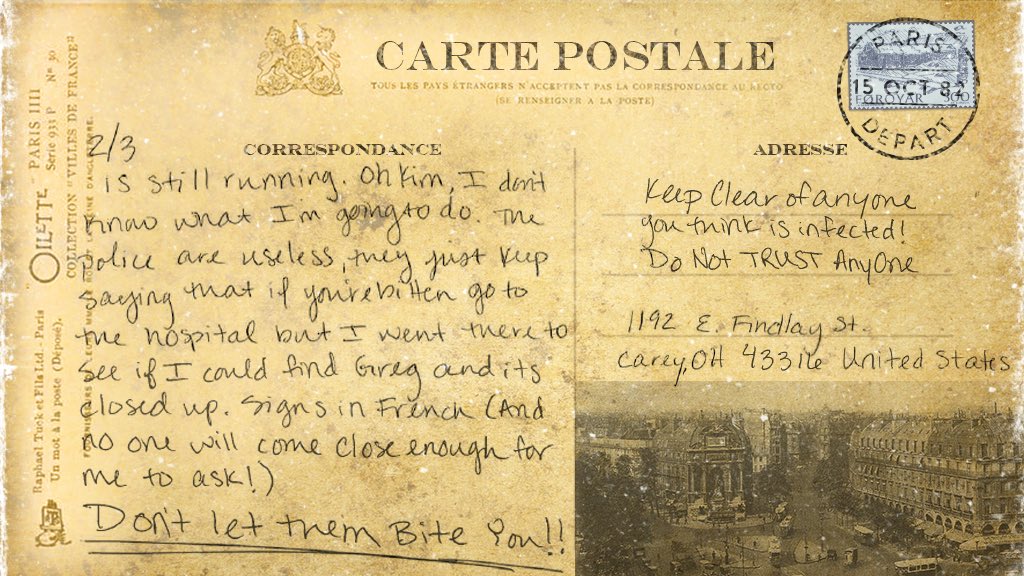 CARTE POSTALE
TOUS LES PAYS ÉTRANGERS N'ACCEPTENT PAS LA CORRESPONDANCE AU RECTO
(SE RENSEIGNER A LA POSTE)
PARIS
15 OCT 82
FØROYAR 300
DEPART
CORRESPONDANCE
2/3
is still running. Oh Kim, I don't
know what I'm going to do. The
police are useless, they just keep
saying that if you're bitten go to
the hospital but I went there to
see if I could find Greg and its
closed up. Signs in French (And
no one will come close enough for
me to ask!)
Don't let them Bite You!!
ADRESSE
Keep Clear of anyone
you think is infected!
Do Not TRUST AnyOne
1192 E. Findlay St.
Carey, OH 43316 United States
OILETTE
PARIS IIII
Série 933 P Nº 30
COLLECTION "VILLES DE FRANCE"
Raphael Tuck et Fils Ltd. Paris
Un mot à la poste (Déposé).